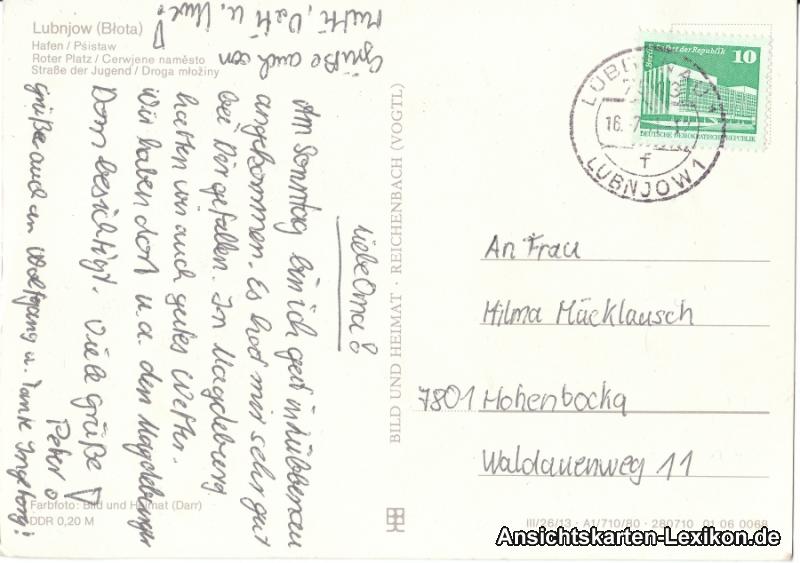 Lubnjow (Błota)
Hafen / Pśistaw
Roter Platz / Cerwjene naměsto
Straße der Jugend / Droga młoźiny
Liebe Oma!
Am Sonntag bin ich gut in Lübbenau
angekommen. Es hat mir sehr gut
bei Dir gefallen. In Magdeburg
hatten wir auch gutes Wetter.
Wir haben dort u.a. den Magdeburger
Dom besichtigt. Viele Grüße!
Peter
Grüße auch an Wolfgang u. Tante Ingeborg!
Grüße auch von
Mutti, Vati u. Uwe!
Farbfoto: Bild und Heimat (Darr)
DDR 0,20 M
BILD UND HEIMAT · REICHENBACH (VOGTL)
der Republik 10
DEUTSCHE DEMOKRATISCHE REPUBLIK
LUBNJOW 1
f
An Frau
Hilma Mäcklausch
7801 Hohenbocka
Waldauenweg 11
III/26/13 · A1/710/80 · 280710 01 06 0068
Ansichtskarten-Lexikon.de